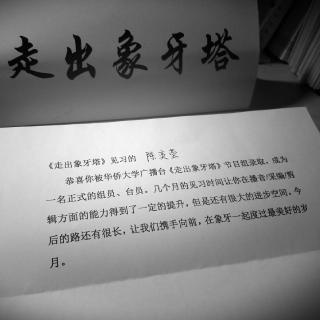 走出象牙塔
《走出象牙塔》见习的 陈美莹
恭喜你被华侨大学广播台《走出象牙塔》节目组录取，成为
一名正式的组员、台员。几个月的见习时间让你在播音/采编/剪
辑方面的能力得到了一定的提升，但是还有很大的进步空间。今
后的路还有很长，让我们携手向前，在象牙一起度过最美好的岁
月。